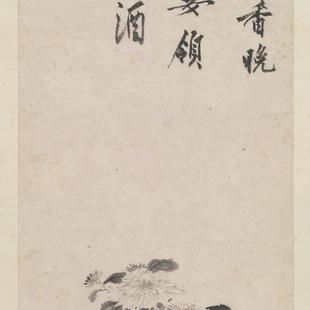 香晚
要領
酒